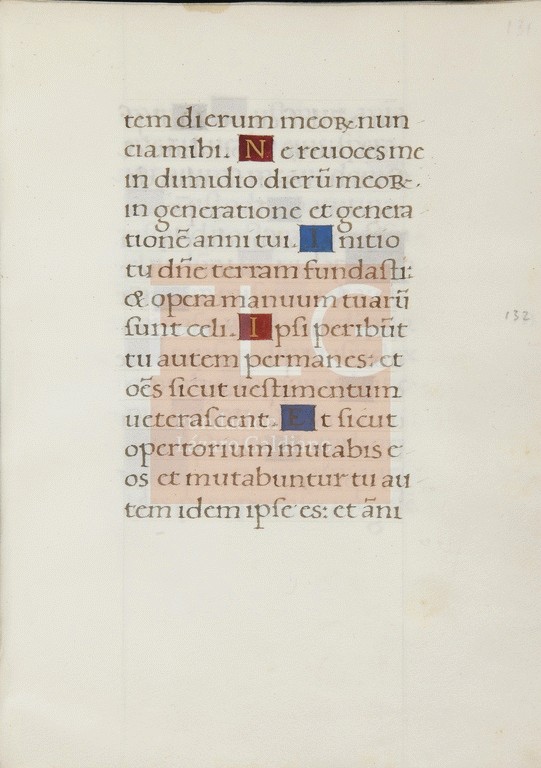 131
tem dierum meoꝝ nun
cia mihi. N e reuoces me
in dimidio dierũ meoꝝ.
in generatione et genera
tionẽ anni tui. I nitio
tu dñe terram fundasti:
& opera manuum tuarũ
sunt celi. I psi peribũt
132
tu autem permanes: et
oẽs sicut uestimentum
ueterascent. E t sicut
opertorium mutabis e
os et mutabuntur tu au
tem idem ipse es: et ãni
FLG
Lázaro Galdiano